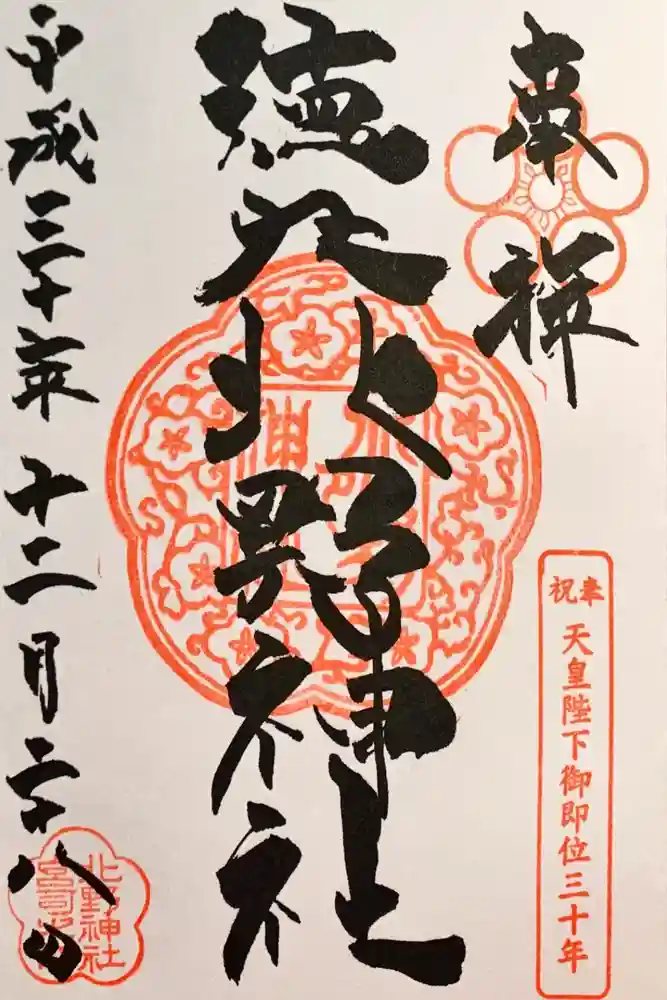 奉拝
奉祝
天皇陛下御即位三十年
北野神社
平成三十年十二月二十八日
北野神社